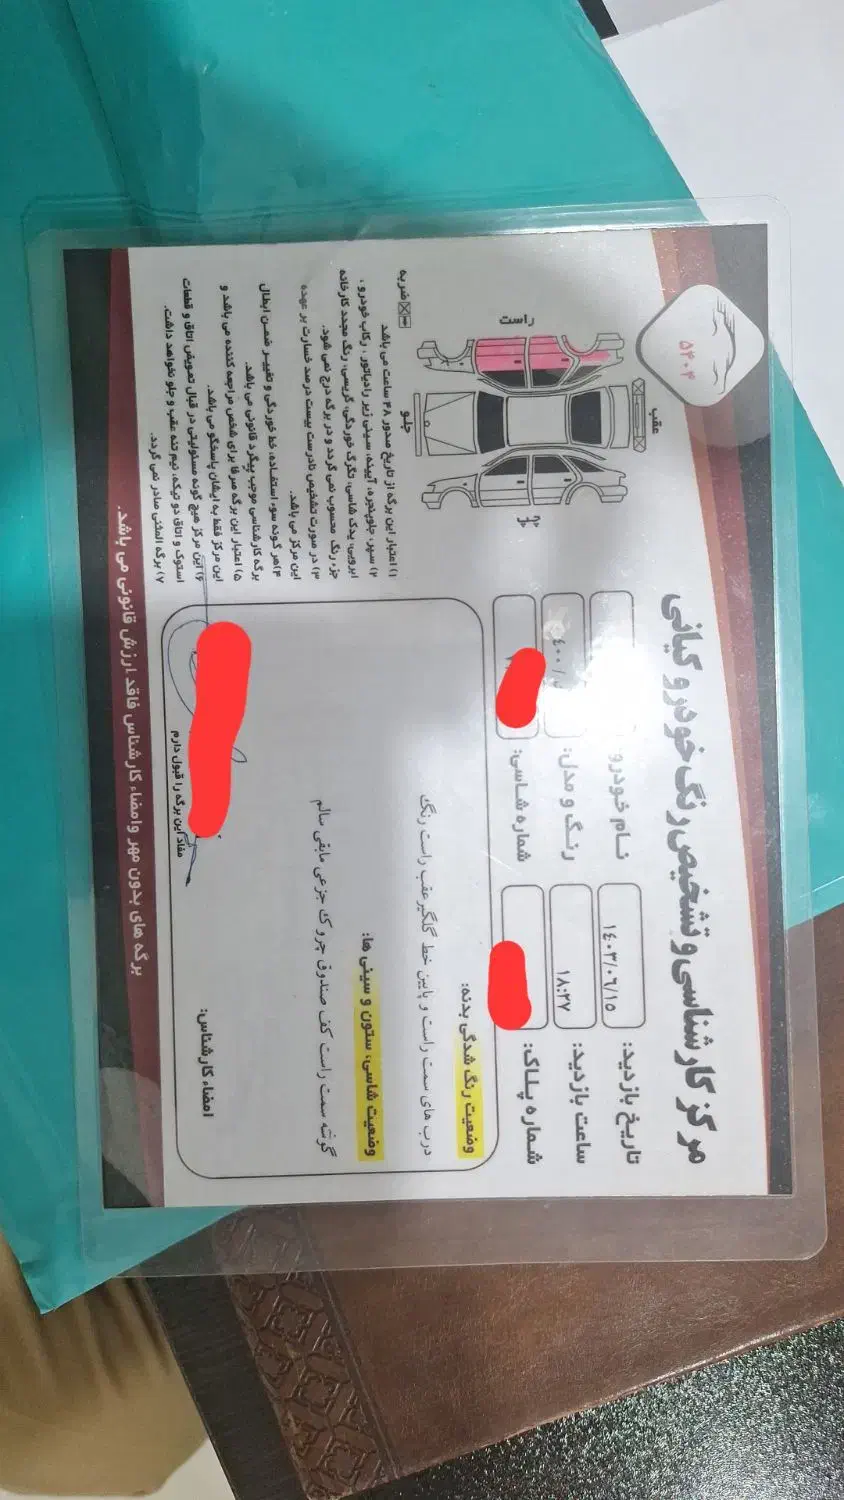 مرکز کارشناسی و تشخیص رنگ خودرو کیانی
۵۴۰۴
تاریخ بازدید: ۱۴۰۳/۰۶/۱۵
نام خودرو
ساعت بازدید: ۱۸:۲۷
رنگ و مدل:
شماره پلاک:
شماره شاسی:
وضعیت رنگ شدگی بدنه:
درب های سمت راست و پایین خط گلگیر عقب راست رنگ
وضعیت شاسی، ستون و سینی ها:
گوشه سمت راست کف صندوق چروک جزعی مابقی سالم
امضاء کارشناس:
مفاد این برگه را قبول دارم
عقب
راست
چپ
جلو
ضربه
۱) اعتبار این برگه از تاریخ صدور ۴۸ ساعت می باشد
۲) سپر، جلوپنجره، آیینه، سینی زیر رادیاتور، رکاب خودرو،
ابرویی، یدک شاسی، تگرگ خوردگی، گریسی، رنگ مجدد کارخانه
جزء رنگ محسوب نمی گردد و در برگه درج نمی شود.
۳) در صورت تشخیص نادرست بیست درصد خسارت بر عهده
این مرکز می باشد.
۴) هر گونه سوء استفاده، خط خوردگی و تغییر ضمن ابطال
برگه کارشناسی موجب پیگرد قانونی می باشد.
۵) اعتبار این برگه صرفا برای شخص مراجعه کننده می باشد و
این مرکز فقط به ایشان پاسخگو می باشد.
۶) این مرکز هیچ گونه مسئولیتی در قبال تعویض اتاق و قطعات
استوک و اتاق دو تیکه، نیم تنه عقب و جلو نخواهد داشت.
۷) برگه المثنی صادر نمی گردد.
برگه های بدون مهر و امضاء کارشناس فاقد ارزش قانونی می باشد.